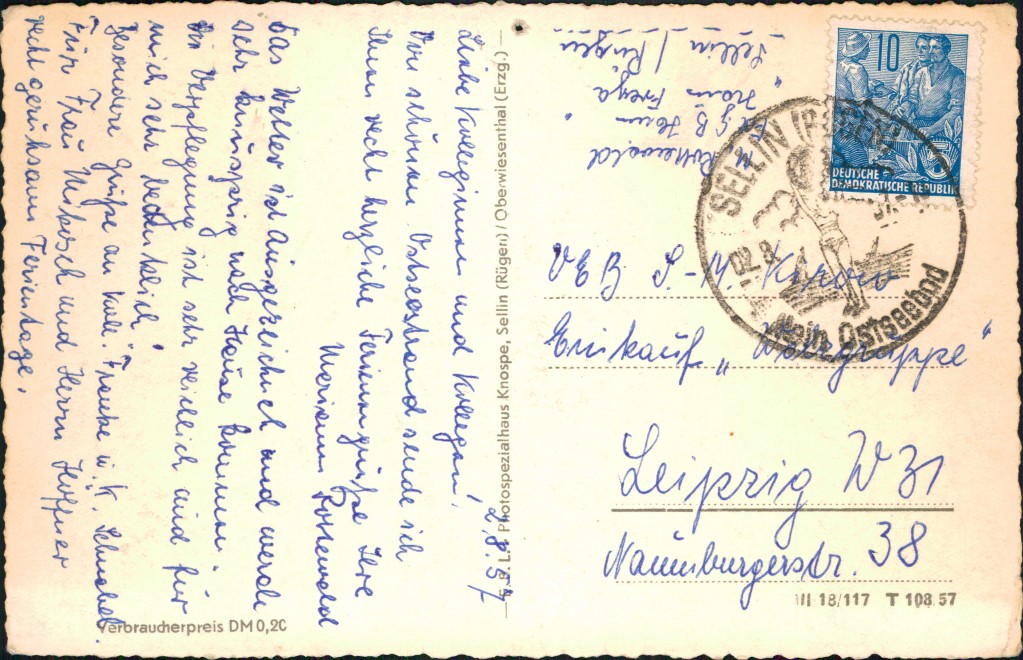 2.8.57
Liebe Kolleginnen und Kollegen!
Vom schönen Ostseestrand sende ich
Ihnen recht herzliche Feriengrüße Ihre
Mariann Rottewald
Das Wetter ist ausgezeichnet und werde
sehr knusprig nach Hause kommen.
Die Verpflegung ist sehr reichlich und für
mich sehr bedenklich!
Besondere Grüße an Koll. Franke u. K. Schnabel.
Für Frau und Herrn Hoffner
recht geruhsame Ferientage.
Verbraucherpreis DM 0,20
Photospezialhaus Knospe, Sellin (Rügen) / Oberwiesenthal (Erzg.)
M. Rottewald
FDGB Heim
"Haus Freya"
Sellin / Rügen
10
DEUTSCHE
DEMOKRATISCHE REPUBLIK
SELLIN (RÜGEN)
Mein Ostseebad
VEB
Einkauf "
Leipzig W 31
Naumburgerstr. 38
III 18/117 T 108/57